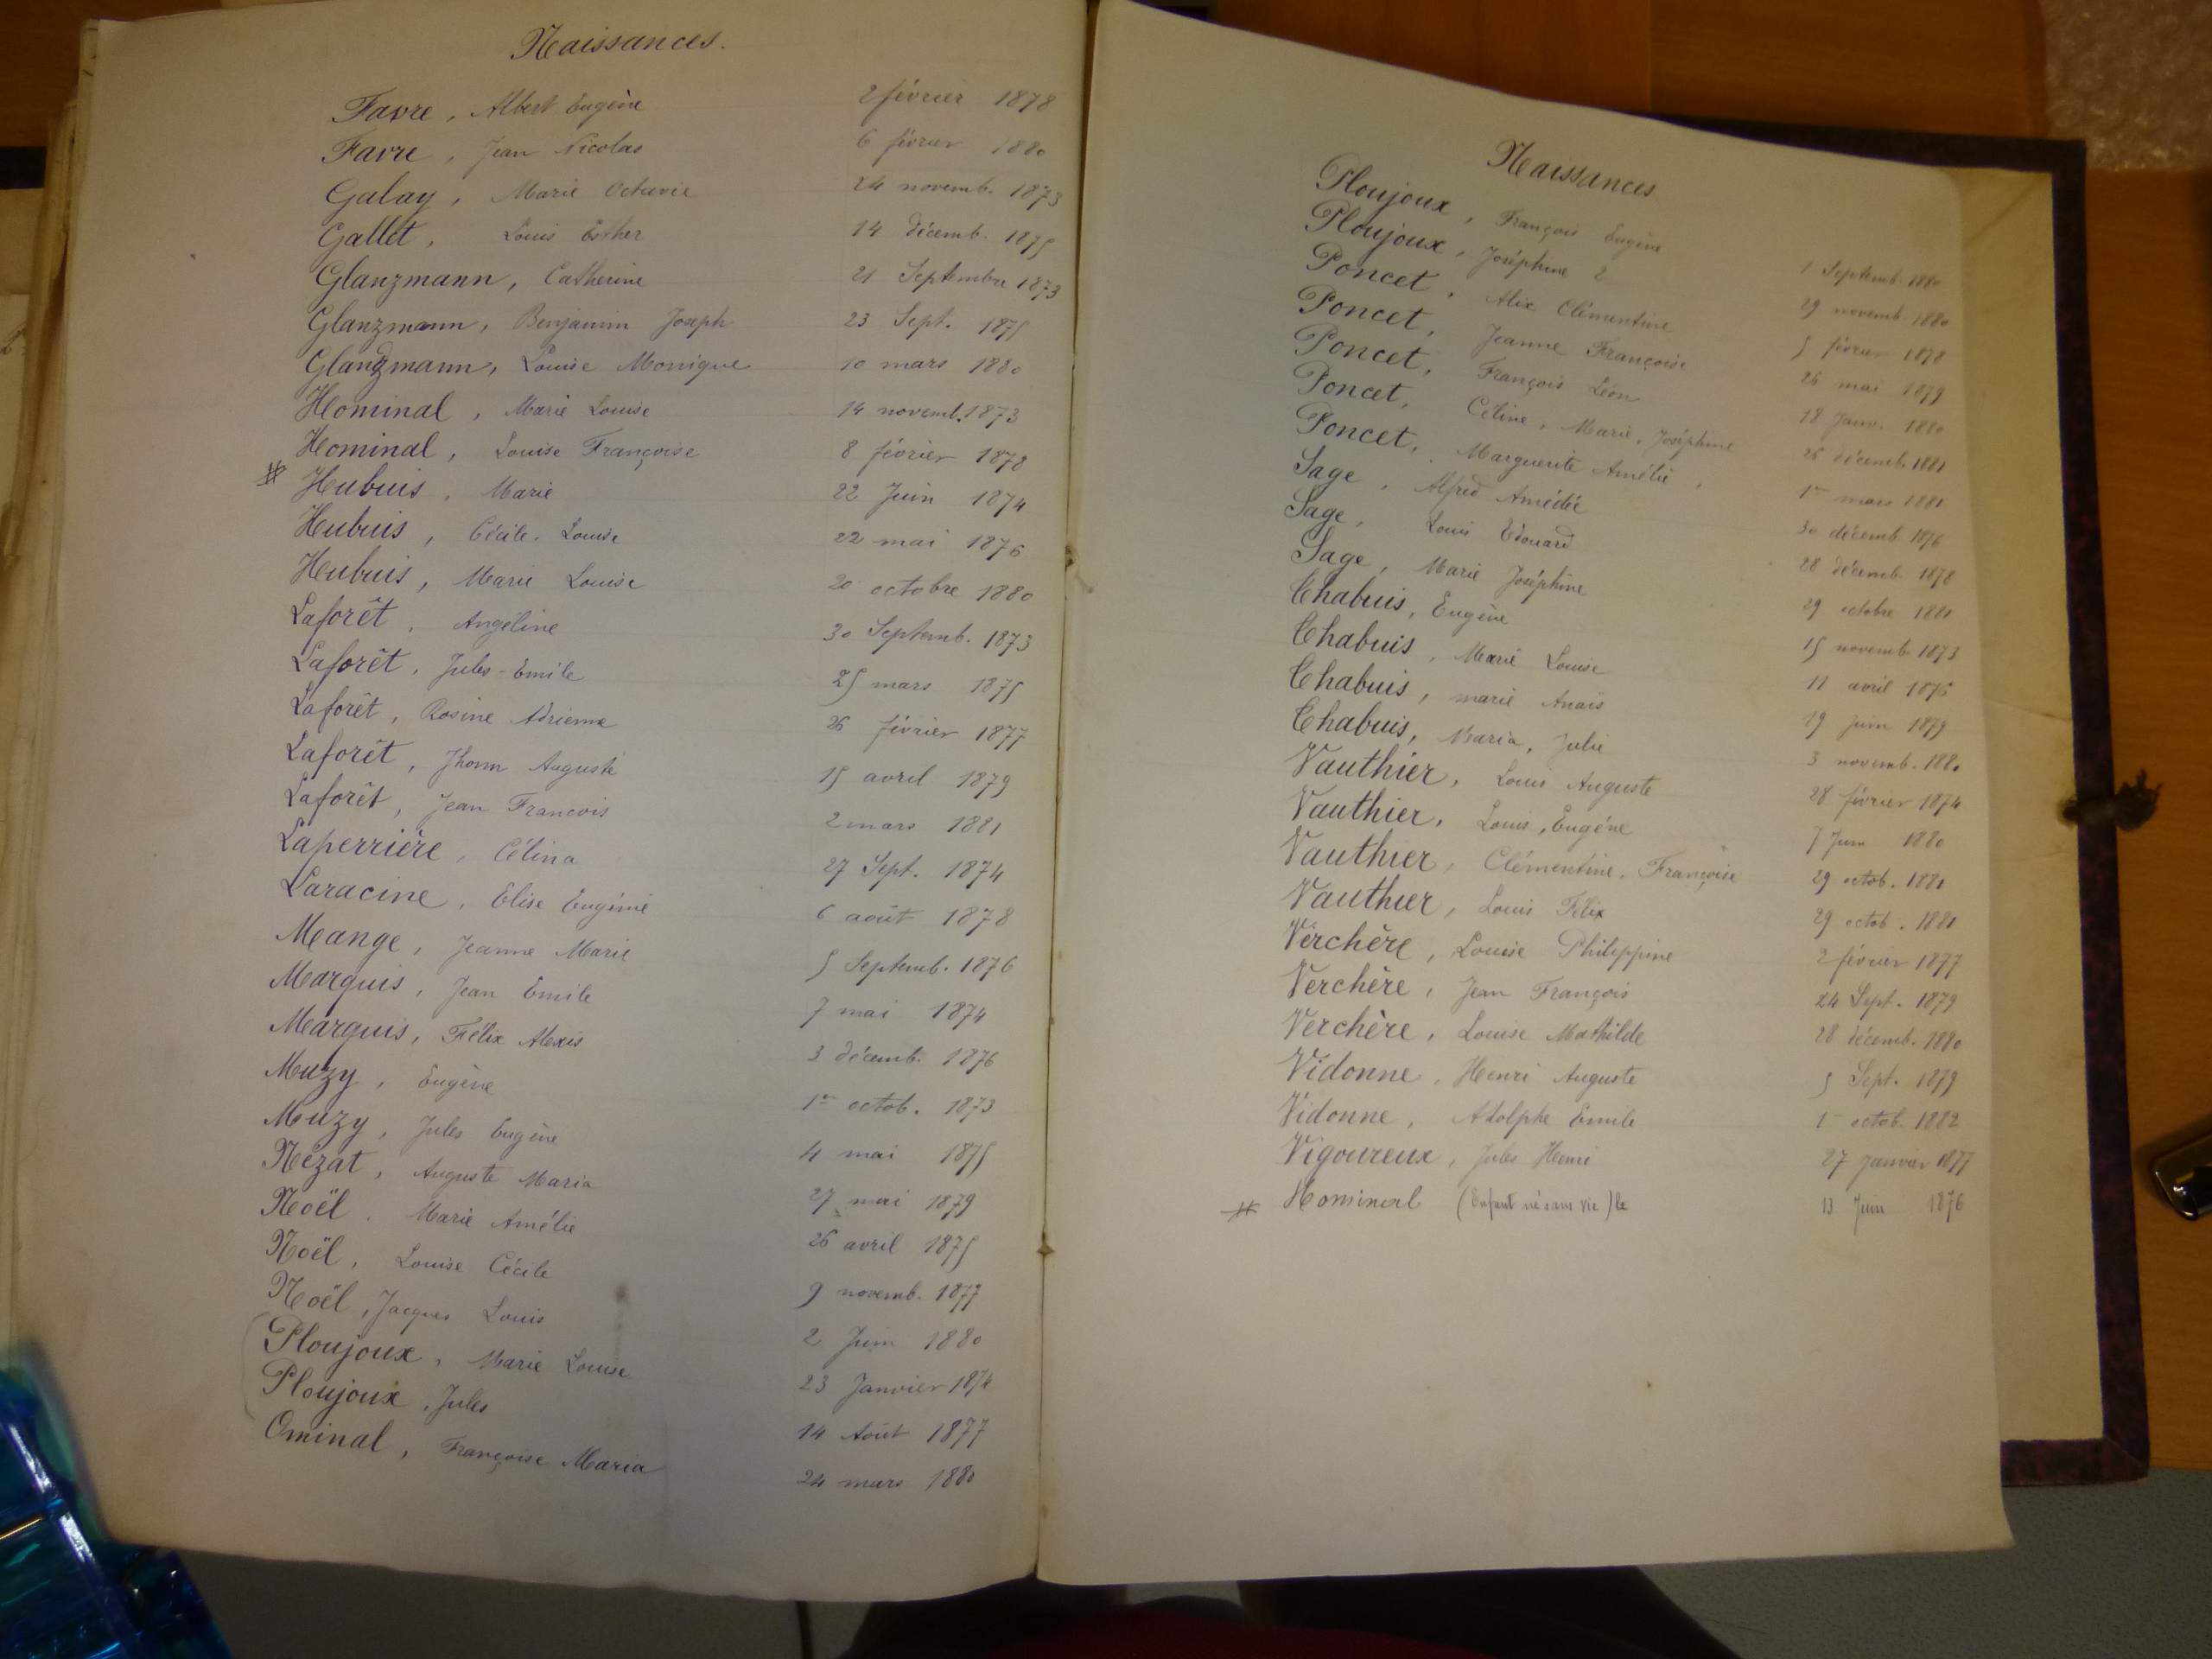 Naissances.
Favre, Albert Eugène 2 février 1878
Favre, Jean Nicolas 6 février 1880
Galay, Marie Octavie 24 novemb. 1873
Gallet, Louis Esther 14 décemb. 1875
Glanzmann, Catherine 21 Septembre 1873
Glanzmann, Benjamin Joseph 23 Sept. 1875
Glanzmann, Louise Monique 10 mars 1880
Hominal, Marie Louise 14 novemb. 1873
Hominal, Louise Françoise 8 février 1878
# Hubuis, Marie 22 Juin 1874
Hubuis, Cécile. Louise 22 mai 1876
Hubuis, Marie Louise 20 octobre 1880
Laforêt, Angéline 30 Septemb. 1873
Laforêt, Jules-Emile 25 mars 1875
Laforêt, Rosine Adrienne 26 février 1877
Laforêt, Jhonn Auguste 15 avril 1879
Laforêt, Jean Francois 2 mars 1881
Laperrière, Célina 27 Sept. 1874
Laracine, Elise Eugénie 6 août 1878
Mange, Jeanne Marie 5 Septemb. 1876
Marquis, Jean Emile 7 mai 1874
Marquis, Félix Alexis 3 décemb. 1876
Muzy, Eugène 1er octob. 1873
Muzy, Jules Eugène 4 mai 1875
Nézat, Auguste Maria 27 mai 1879
Noël. Marie Amélie 26 avril 1875
Noël, Louise Cécile 9 novemb. 1877
Noël, Jacques Louis 2 Juin 1880
Ploujoux, Marie Louise 23 Janvier 1874
Ploujoux, Jules 14 Août 1877
Ominal, Françoise Maria 24 mars 1880
Naissances
Ploujoux, François Eugène 1 Septemb. 1880
Ploujoux, Joséphine 29 novemb. 1880
Poncet, Alix Clémentine 5 février 1878
Poncet, Jeanne Françoise 26 mai 1879
Poncet, François Léon 18 Janv. 1880
Poncet, Céline, Marie, Joséphine 25 décemb. 1881
Poncet, Marguerite Amélie, 1er mars 1881
Sage, Alfred Amédée 30 décemb. 1876
Sage, Louis Edouard 28 décemb. 1878
Sage, Marie Joséphine 29 octobre 1881
Chabuis, Eugène 15 novemb. 1873
Chabuis, Marie Louise 11 avril 1876
Chabuis, marie Anaïs 19 Juin 1879
Chabuis, Maria, Julie 3 novemb. 1880
Vauthier, Louis Auguste 28 février 1874
Vauthier, Louis, Eugéne 7 Juin 1880
Vauthier, Clémentine, Françoise 29 octob. 1881
Vauthier, Louis Félix 29 octob. 1881
Verchère, Louise Philippine 2 février 1877
Verchère, Jean François 24 Sept. 1879
Verchère, Louise Mathilde 28 décemb. 1880
Vidonne, Henri Auguste 5 Sept. 1879
Vidonne, Adolphe Emile 1er octob. 1882
Vigoureux, Jules Henri 27 Janvier 1877
# Hominal (Enfant né sans vie) le 13 Juin 1876